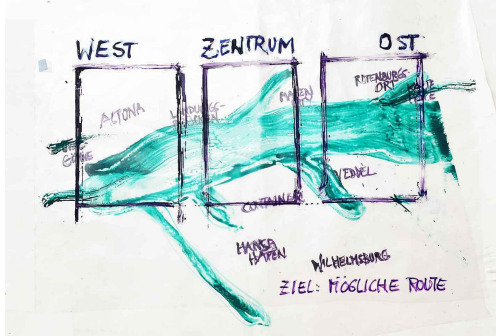 WEST ZENTRUM OST
ALTONA
LANDUNGS-
HAFEN
ROTENBURGS
ORT
VEDDEL
CONTAINER
HANSA
HAFEN
WILHELMSBURG
ZIEL: MÖGLICHE ROUTE